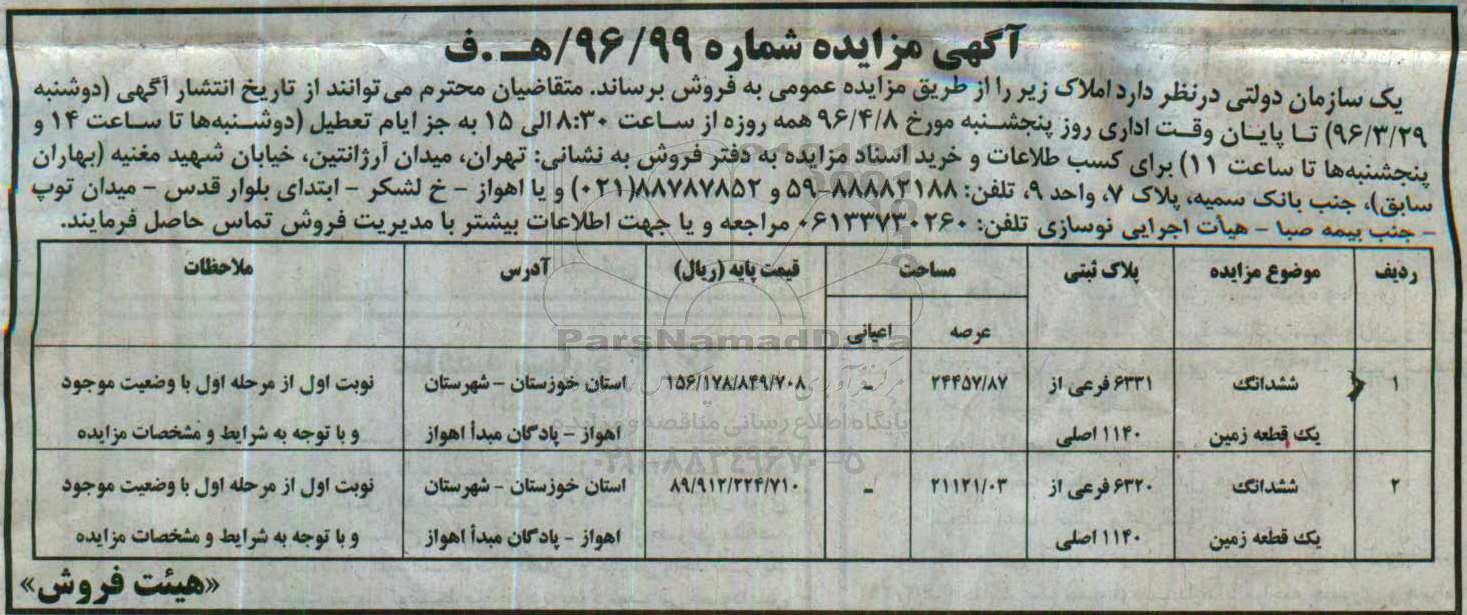 آگهی مزایده شماره ۹۶/۹۹/هـ.ف
یک سازمان دولتی درنظر دارد املاک زیر را از طریق مزایده عمومی به فروش برساند. متقاضیان محترم می‌توانند از تاریخ انتشار آگهی (دوشنبه
۹۶/۳/۲۹) تا پایان وقت اداری روز پنجشنبه مورخ ۹۶/۴/۸ همه روزه از ساعت ۸:۳۰ الی ۱۵ به جز ایام تعطیل (دوشنبه‌ها تا ساعت ۱۴ و
پنجشنبه‌ها تا ساعت ۱۱) برای کسب طلاعات و خرید اسناد مزایده به دفتر فروش به نشانی: تهران، میدان آرژانتین، خیابان شهید مغنیه (بهاران
سابق)، جنب بانک سمیه، پلاک ۷، واحد ۹، تلفن: ۸۸۸۸۲۱۸۸-۵۹ و ۸۸۷۸۷۸۵۲(۰۲۱) و یا اهواز - خ لشکر - ابتدای بلوار قدس - میدان توپ
- جنب بیمه صبا - هیأت اجرایی نوسازی تلفن: ۰۶۱۳۳۷۳۰۲۶۰ مراجعه و یا جهت اطلاعات بیشتر با مدیریت فروش تماس حاصل فرمایند.
ردیف موضوع مزایده پلاک ثبتی مساحت قیمت پایه (ریال) آدرس ملاحظات
عرصه اعیانی
۱ ششدانگ ۶۳۳۱ فرعی از ۲۴۴۵۷/۸۷ - ۱۵۶/۱۷۸/۸۴۹/۷۰۸ استان خوزستان - شهرستان نوبت اول از مرحله اول با وضعیت موجود
یک قطعه زمین ۱۱۴۰ اصلی اهواز - پادگان مبدأ اهواز و با توجه به شرایط و مشخصات مزایده
۲ ششدانگ ۶۳۲۰ فرعی از ۲۱۱۲۱/۰۳ - ۸۹/۹۱۲/۲۲۴/۷۱۰ استان خوزستان - شهرستان نوبت اول از مرحله اول با وضعیت موجود
یک قطعه زمین ۱۱۴۰ اصلی اهواز - پادگان مبدأ اهواز و با توجه به شرایط و مشخصات مزایده
«هیئت فروش»
ParsNamadData
پایگاه اطلاع رسانی مناقصه و مزایده
۰۲۱-۸۸۳۴۹۶۷۰-۵